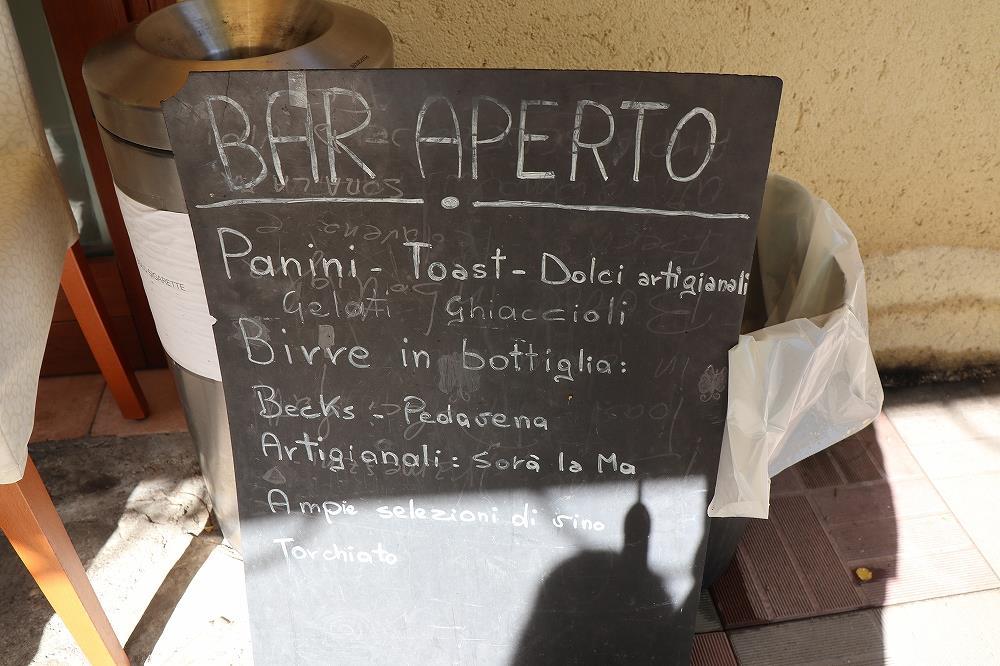 BAR APERTO
Panini - Toast - Dolci artigianali
Gelati Ghiaccioli
Birre in bottiglia:
Becks - Pedavena
Artigianali: sorà la Ma
Ampie selezioni di vino
Torchiato
SIGARETTE